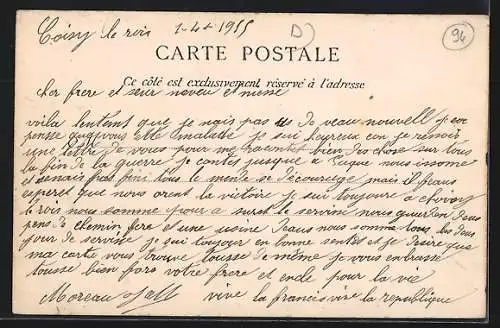 Choisy le rois 1-4+ 1915 D) 94
CARTE POSTALE
Ce côté est exclusivement réservé à l'adresse
cher frere et seur neveu et niese
voila lentent que je nais pas us de veau nouvell je
pense que vous ete malade je sui heureux con je
une lettre de vous pour me raconter bien des chose sur tous
la fin de la guerre je contes jusque a
et senais pas fini tous le monde se decourege mais il feaus
esperet que nous oront la victoire je sui toujours a choisy
le rois nous somme pour a suret le servise nous gardon deus
pens de chemin fere et une usine deaus nous somme tous les deus
jour de servise je sui toujour en bonne sentes et je desire que
ma carte vous trouve tousse de même je vous embrasse
tousse bien fors votre frere et oncle pour la vie
Moreau vive la francis vive la republique